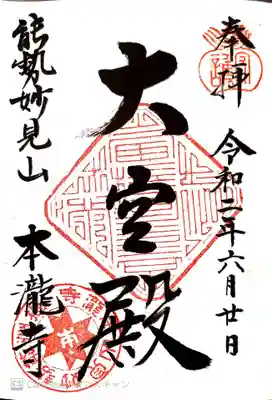 奉拝
令和二年六月廿日
大空殿
能勢妙見山
本瀧寺